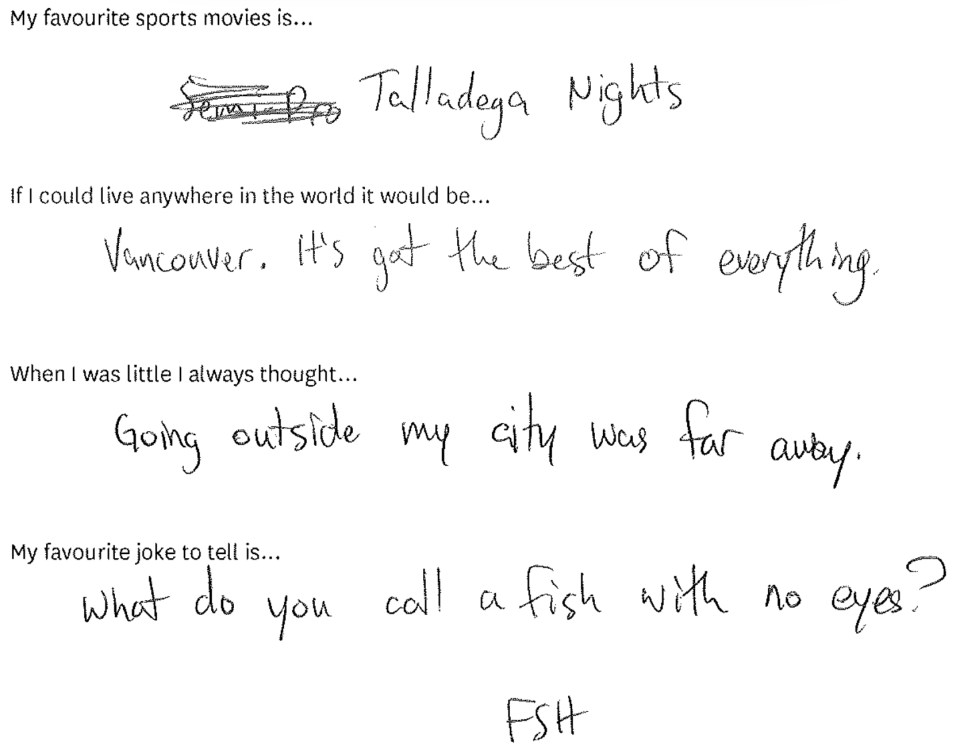 My favourite sports movies is...
Semi-Pro Talladega Nights
If I could live anywhere in the world it would be...
Vancouver. It's got the best of everything.
When I was little I always thought...
Going outside my city was far away.
My favourite joke to tell is...
What do you call a fish with no eyes?
FSH